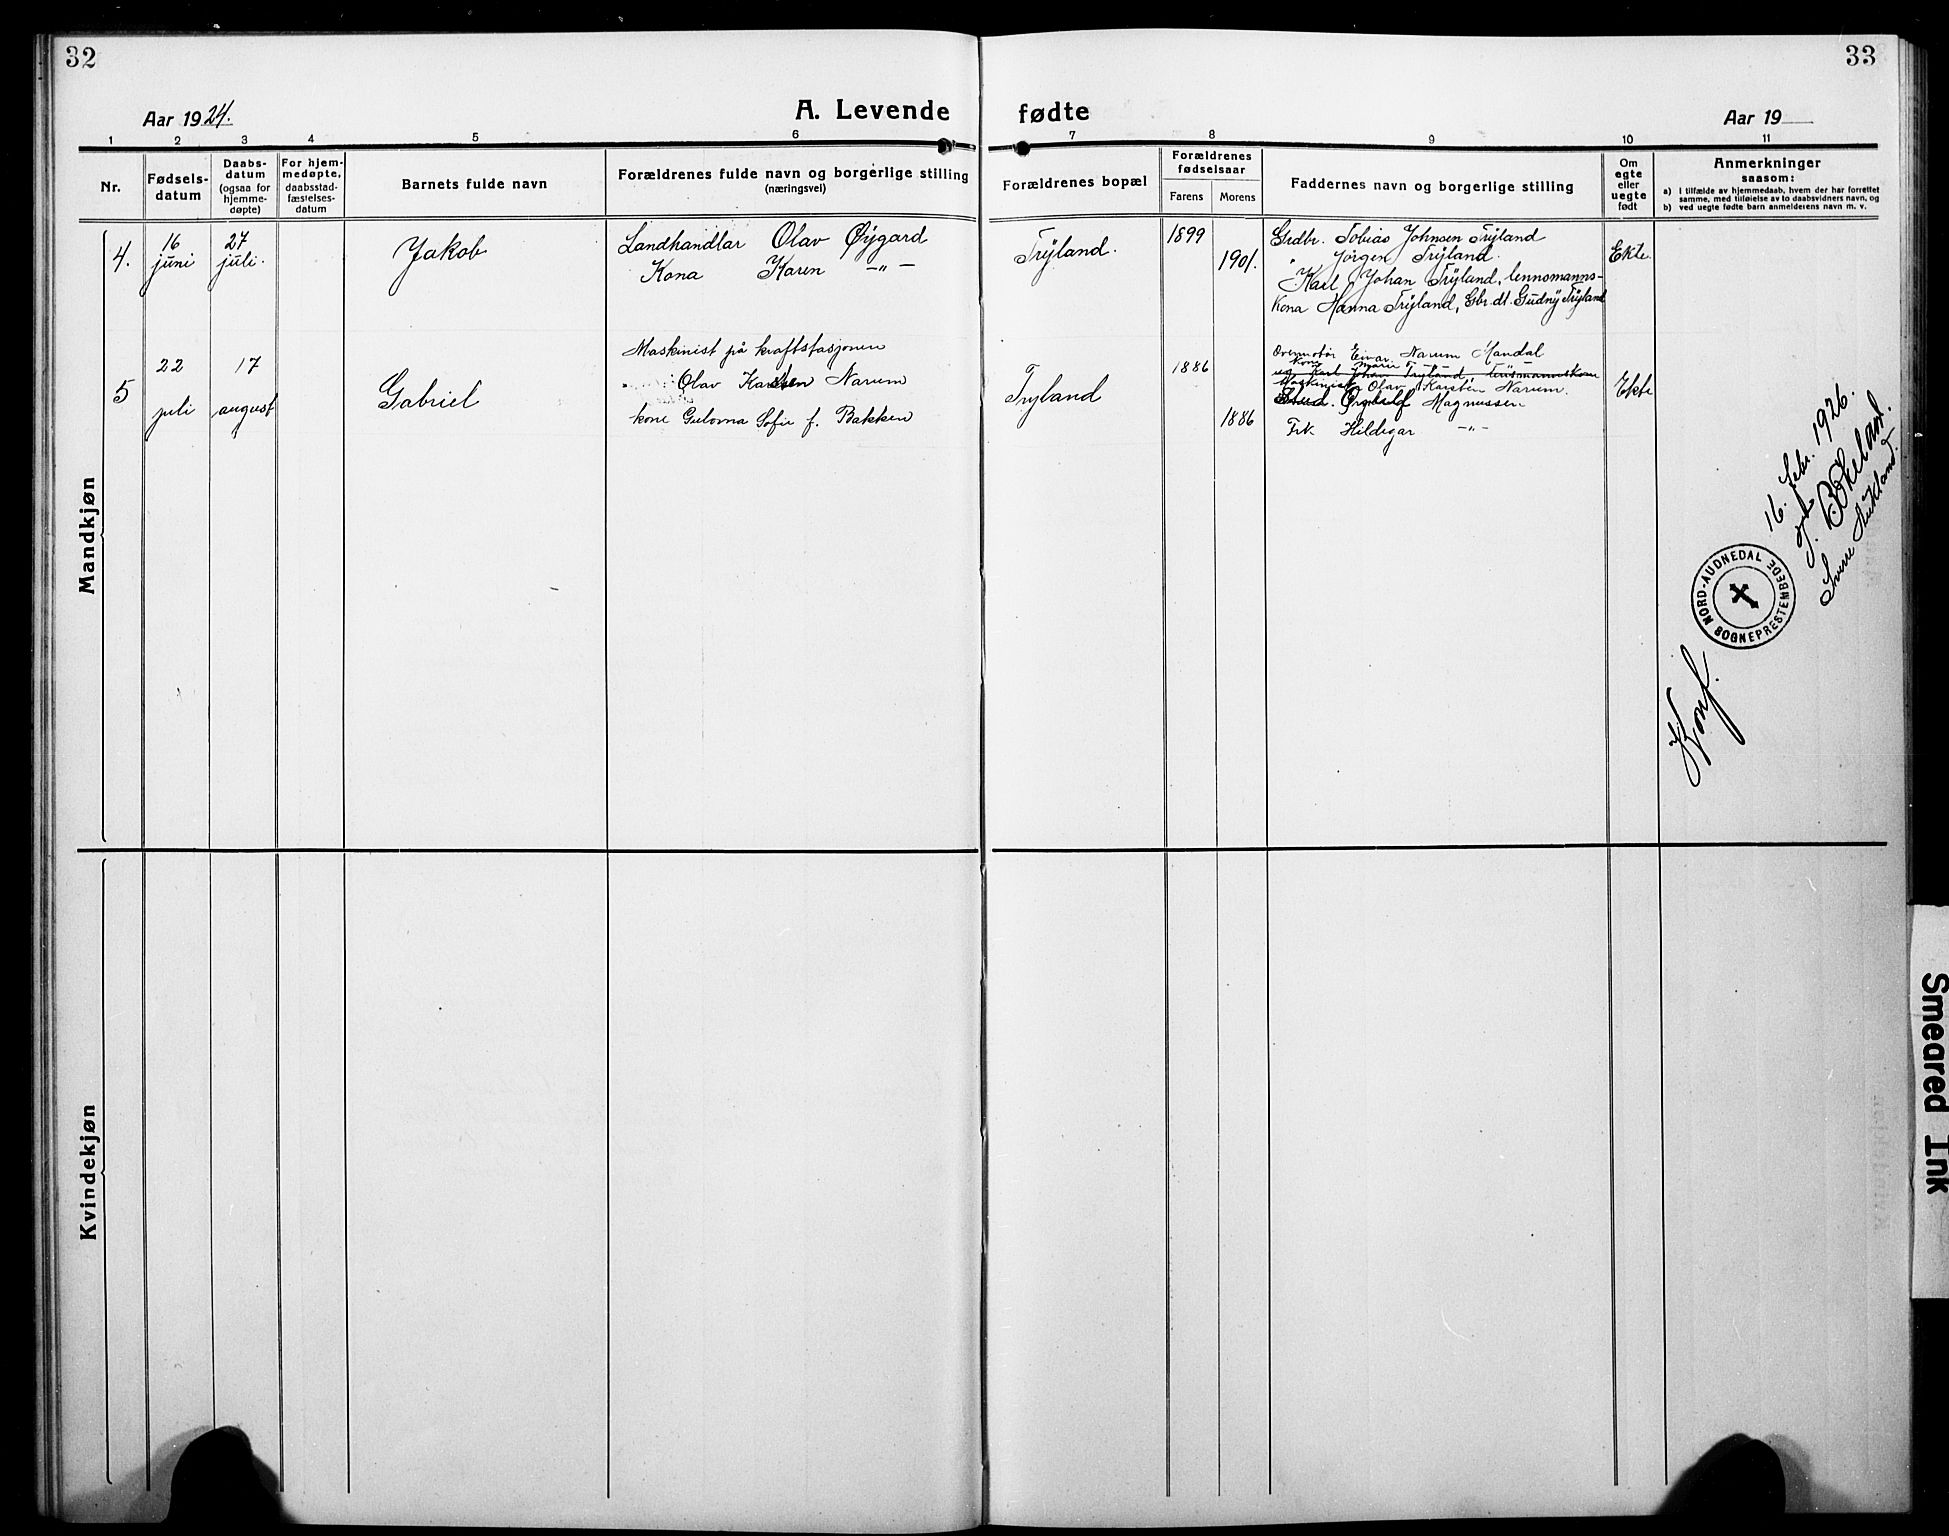 32
33
Aar 1924.
A. Levende fødte
Aar 19
1 2 3 4 5 6 7 8 9 10 11
Nr.
Fødsels-
datum
Daabs-
datum
(ogsaa for
hjemme-
døpte)
For hjem-
medøpte,
daabsstad-
fæstelses-
datum
Barnets fulde navn
Forældrenes fulde navn og borgerlige stilling
(næringsvei)
Forældrenes bopæl
Forældrenes
fødselsaar
Farens Morens
Faddernes navn og borgerlige stilling
Om
egte
eller
uegte
født
Anmerkninger
saasom:
a) I tilfælde av hjemmedaab, hvem der har forrettet
samme, med tilføielse av to daabsvidners navn, og
b) ved uegte fødte barn anmelderens navn m. v.
Mandkjøn
4.
16
juni
27
juli.
Jakob
Landhandlar Olav Øygard
Kona Karen —"—
Trÿland.
1899
1901.
Grdbr. Tobias Johnsen Trÿland
" Jörgen Trÿland.
Karl Johan Trÿland, lennsmanns-
kona Hanna Trÿland, Gbr.dt. Gudnÿ Trÿland
Ekte.
5
22
juli
17
august
Gabriel
Maskinist på kraftstasjonen
Olav Karsten Narum
kone Gulovna Sofie f. Bakken
Tryland
1886
1886
Einar Narum Mandal
kone Marie —"—
Karl Johan Tryland
Maskinist Olav Karsten Narum.
Magnussen
Frk. Hildegar —"—
Ekte
Konf.
NORD-AUDNEDAL SOGNEPRESTEMBEDE
16. febr. 1926.
J. Birkeland.
Sverre Aukland.
Kvindekjøn
Smeared Ink